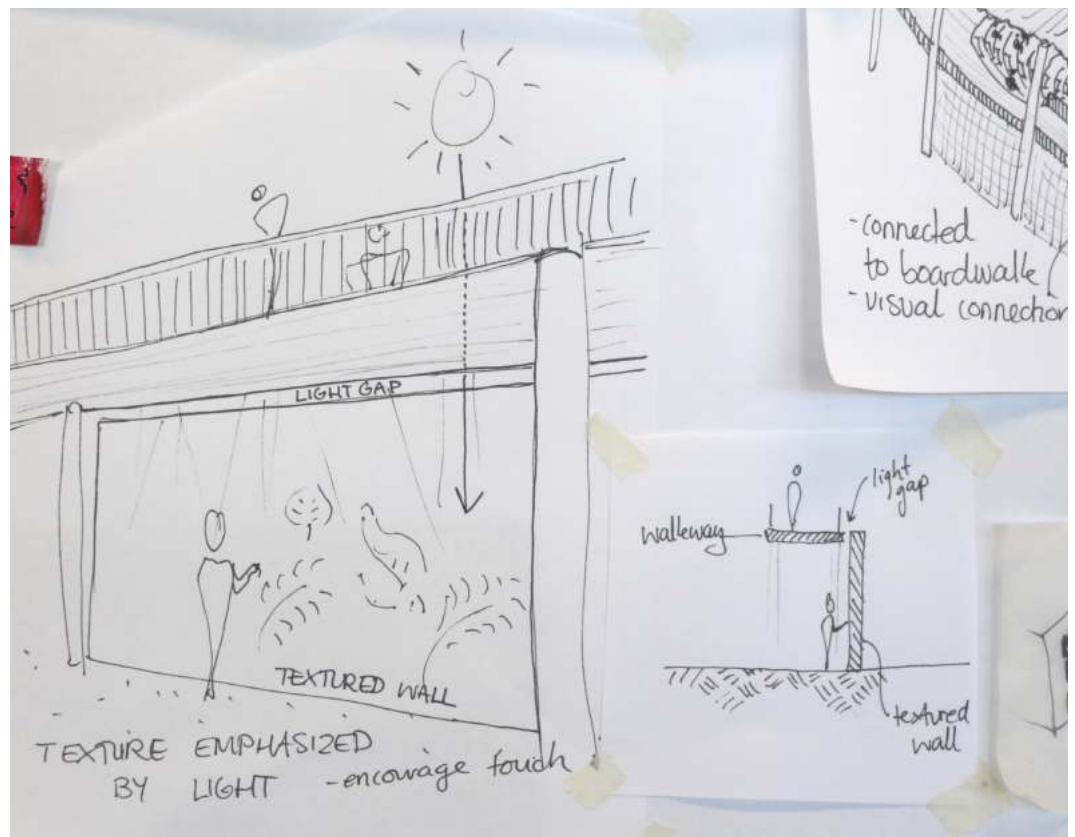 LIGHT GAP
TEXTURED WALL
TEXTURE EMPHASIZED
BY LIGHT - encourage touch
- connected
to boardwalk
- visual connection
light
gap
walkway
textured
wall